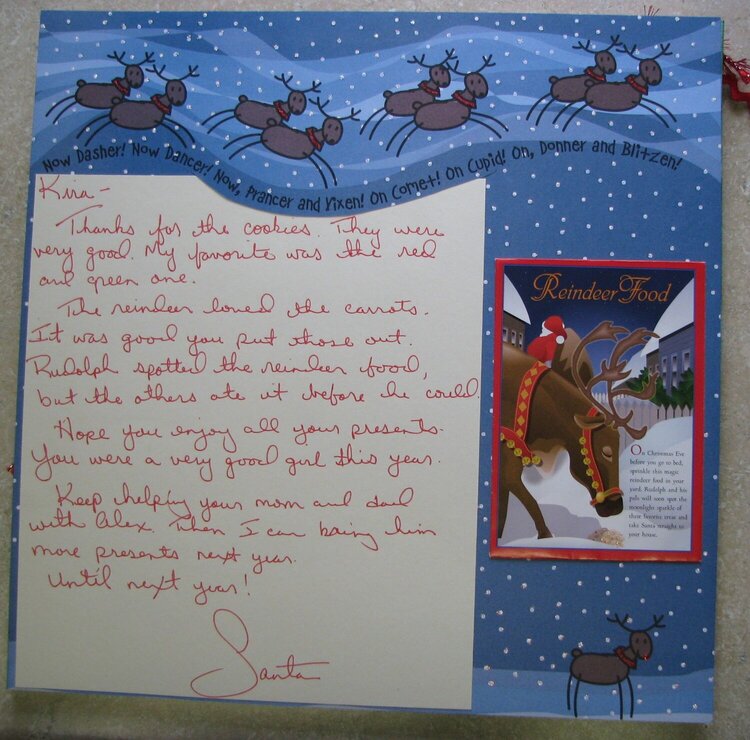 Now Dasher! Now Dancer! Now, Prancer and Vixen! On Comet! On Cupid! On, Donner and Blitzen!
Kira-
Thanks for the cookies. They were
very good. My favorite was the red
and green one.
The reindeer loved the carrots.
It was good you put those out.
Rudolph spotted the reindeer food,
but the others ate it before he could.
Hope you enjoy all your presents.
You were a very good girl this year.
Keep helping your mom and dad
with Alex. Then I can bring him
more presents next year.
Until next year!
Santa
Reindeer Food
On Christmas Eve
before you go to bed,
sprinkle this magic
reindeer food in your
yard. Rudolph and his
pals will soon spot the
moonlight sparkle of
their favorite treat and
take Santa straight to
your house.